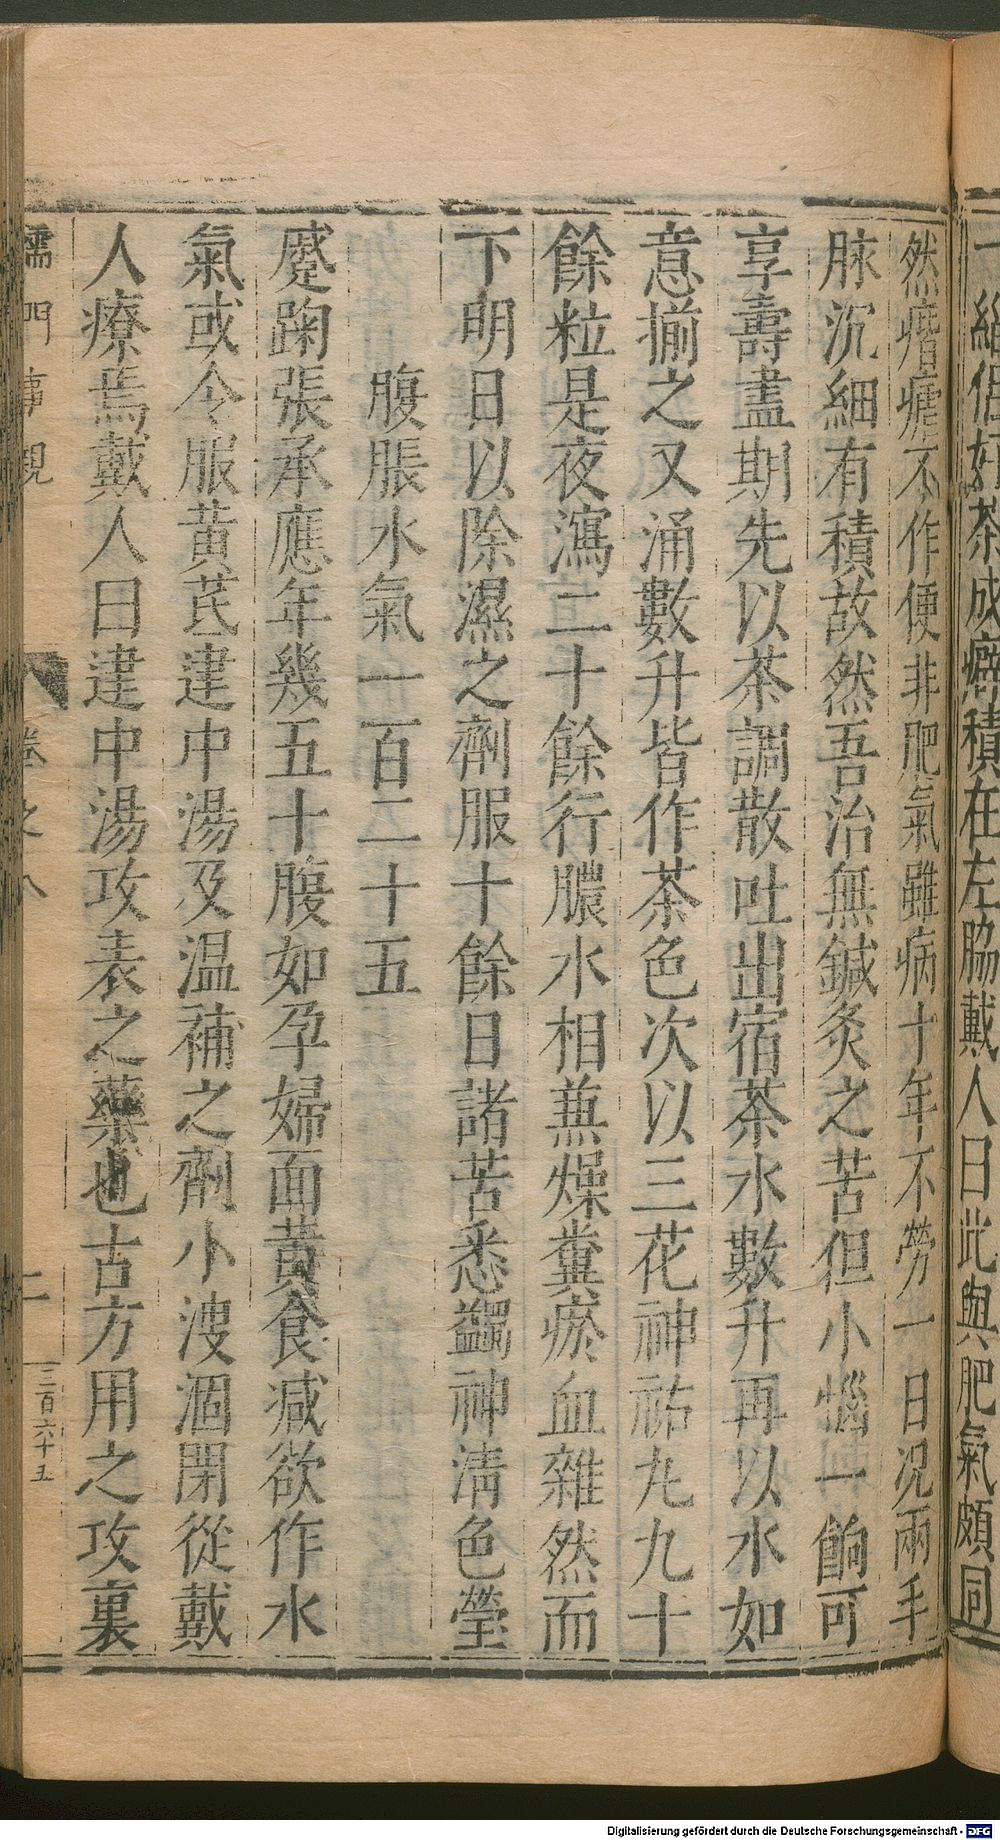 一緇侶好茶成癖積在左脇戴人曰此與肥氣頗同
然㾬瘧不作便非肥氣雖病十年不勞一日況兩手
脉沉細有積故然吾治無鍼灸之苦但小惱一餉可
享壽盡期先以茶調散吐出宿茶水數升再以水如
意揃之又涌數升皆作茶色次以三花神祐丸九十
餘粒是夜瀉二十餘行膿水相兼燥糞瘀血雜然而
下明日以除濕之劑服十餘日諸苦悉蠲神清色瑩
腹脹水氣一百二十五
蹙踘張承應年幾五十腹如孕婦面黃食減欲作水
氣或令服黃芪建中湯及温補之劑小溲涸閉從戴
人療焉戴人曰建中湯攻表之藥也古方用之攻裏
儒門事親 卷之八 二 三百六十五
Digitalisierung gefördert durch die Deutsche Forschungsgemeinschaft - DFG